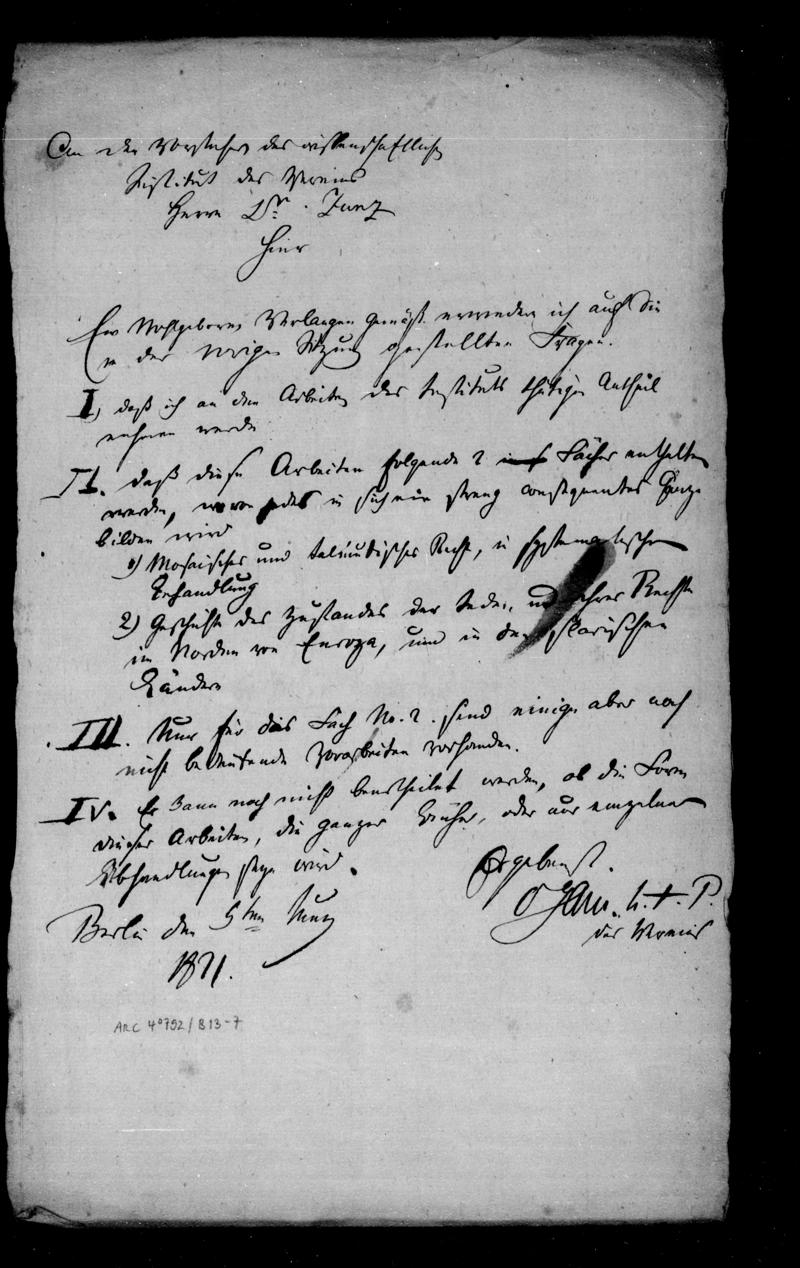 An den Vorsteher des wissenschaftlichen
Institut des Vereins
Herrn Dr. Zunz
Hier
Ew Wohlgeboren Verlangen gemäß erwiedere ich auf die
in der vorigen Sitzung gestellten Fragen.
I, daß ich an den Arbeiten des Instituts thätigen Antheil
nehmen werde
II. daß diese Arbeiten folgende 2 Fächer enthalten
werden, wovon jedes in sich ein streng consequentes Ganze
bilden wird
1) Mosaisches und talmudisches Recht, in systematischer
Behandlung
2) Geschichte des Zustandes der Juden, und ihres Rechts
im Norden von Europa, und in den slavischen
Ländern
III. Nur für das Fach No. 2. sind einige aber noch
nicht bedeutende Vorarbeiten vorhanden.
IV. Es kann noch nicht beurtheilet werden, ob die Form
dieser Arbeiten, die ganzer Bücher, oder nur einzelner
Abhandlungen seyn wird.
Ergebenst.
Berlin den 5ten
des Vereins
1821.
ARC 4°792/B13-7